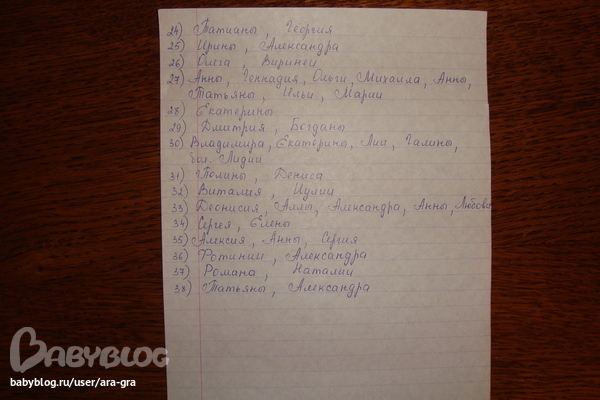 24) Татианы, Георгия
25) Ирины, Александра
26) Олега, Виринеи
27) Анны, Геннадия, Ольги, Михаила, Анны,
Татьяны, Ильи, Марии
28) Екатерины
29) Дмитрия, Богданы
30) Владимира, Екатерины, Лии, Галины,
бол. Лидии
31) Полины, Дениса
32) Виталия, Иулии
33) Деонисия, Аллы, Александра, Анны, Любови
34) Сергея, Елены
35) Алексия, Анны, Сергия
36) Фотинии, Александра
37) Романа, Наталии
38) Татьяны, Александра
BABYBLOG
babyblog.ru/user/ara-gra